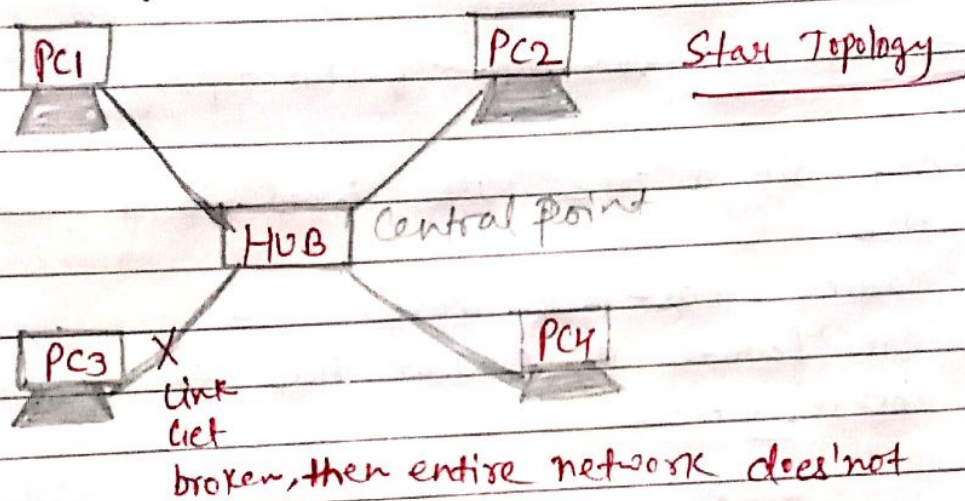 PC1
PC2
Star Topology
HUB
Central Point
PC3
X
PC4
Link
Get
broken, then entire network does'not